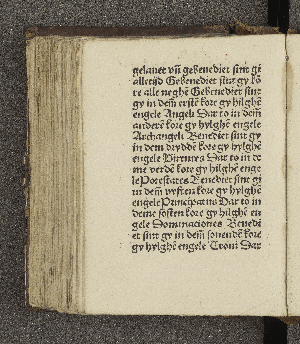 gelauet vñ gebenediet sint gi
alletijd Gebenediet sint gy kö
re alle neghē Gebenediet sint
gy in dem̄ erstē kore gy hilghē
engele Angeli Dar to in dem̄
anderē kore gy hylghē engele
Archangeli Benediet sint gy
in dem drydde kore gy hylghē
engele Virtutes Dar to in de
me verdē kore gy hilghē enge
le Potestates Benediet sint gi
in dem vyften kore gy hylghē
engele Principatus Dar to in
deme sosten kore gy hilghē en
gele Dominaciones Benedi
et sint gy in dem̄ souendē kore
gy hylghē engele Troni Dar